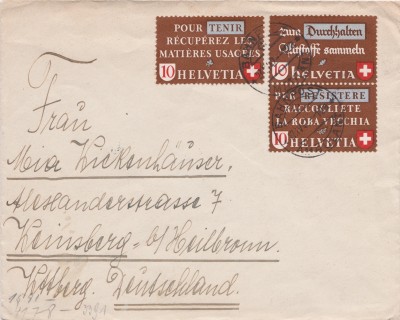 POUR TENIR
RÉCUPÉREZ LES
MATIÈRES USAGÉES
10 HELVETIA
zum Durchhalten
Altstoffe sammeln
10 HELVETIA
PER RESISTERE
RACCOGLIETE
LA ROBA VECCHIA
10 HELVETIA
Frau
Mia Wickenhäuser,
Alexanderstrasse 7
Weinsberg b/Heilbronn.
Wttberg. Deutschland.